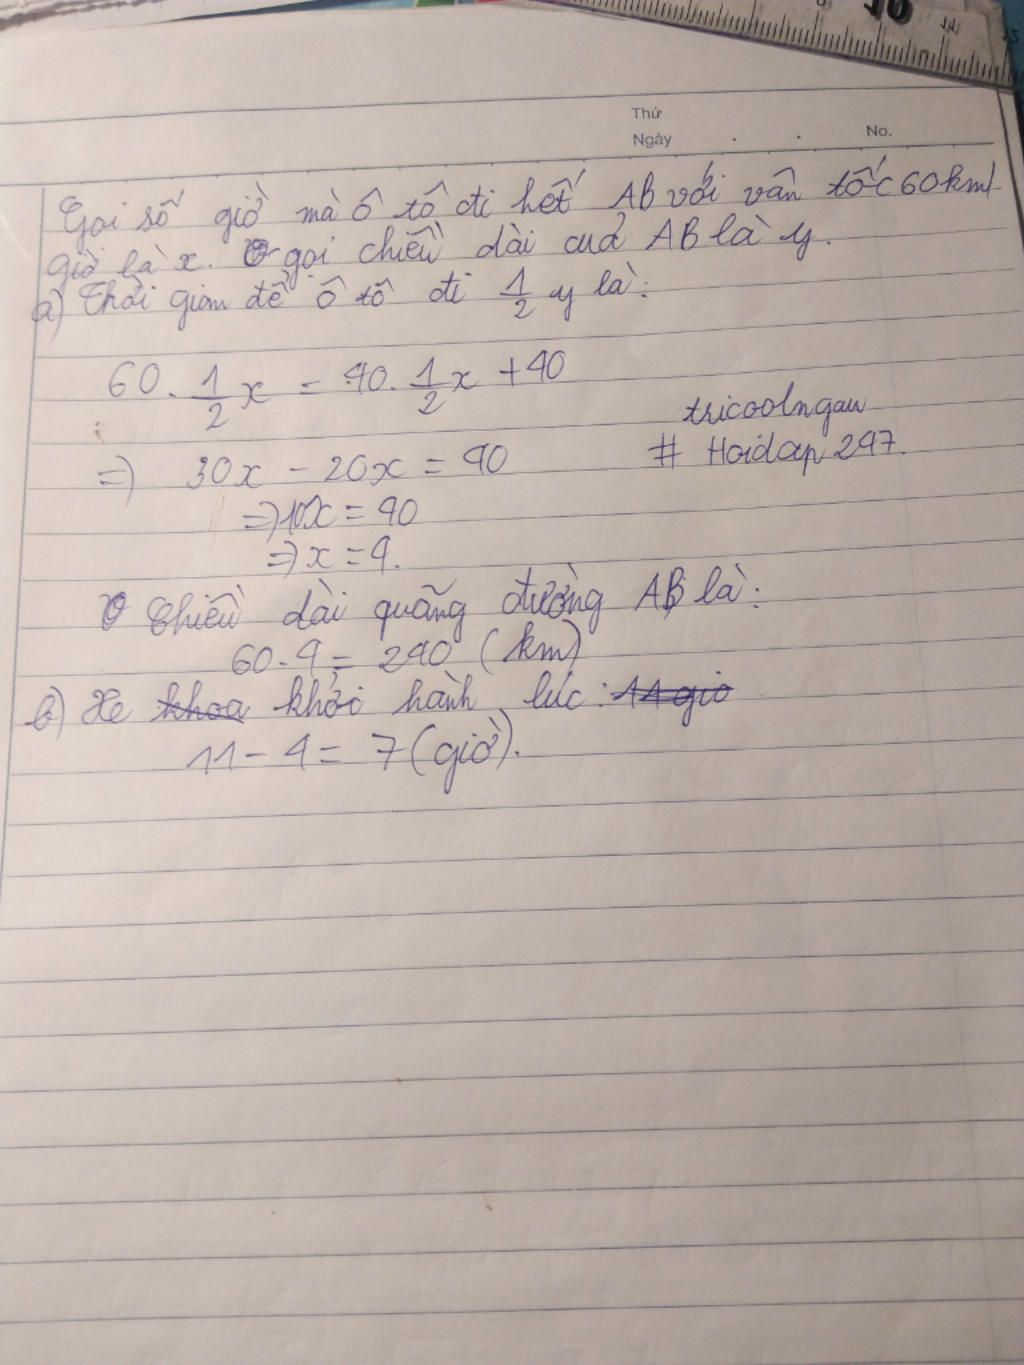 10
14
15
Thứ
Ngày . . No.
Gọi số giờ mà ô tô đi hết AB với vân tốc 60km/
giờ là x. gọi chiều dài cuả AB là y.
a) Thời gian để ô tô đi 1/2 y là:
60 . 1/2 x = 40. 1/2 x + 40
tricoolngau
=) 30x - 20x = 40
# Hoidap247.
=) 10x = 40
=) x = 4.
Chiều dài quãng đường AB là:
60 . 4 = 240 (km)
b) Xe khoa khởi hành lúc: 11 giờ
11 - 4 = 7 (giờ).